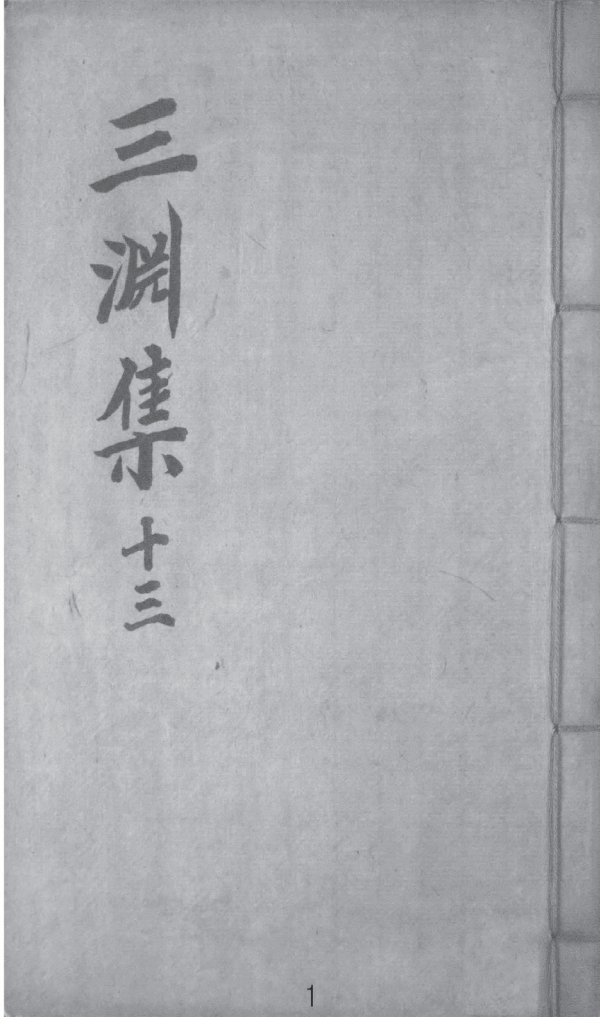 三淵集十三
1